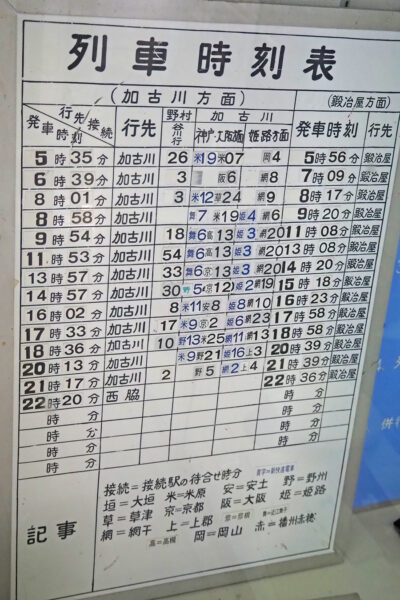 列車時刻表
(加古川方面) (鍛冶屋方面)
行先 接続 発車時刻 行先 野村 加古川 発車時刻 行先
谷川行 神戸・大阪方面 姫路方面
5時35分 加古川 26 米19米07 岡4 5時56分 鍛冶屋
6時39分 加古川 3 阪6 網8 7時09分 鍛冶屋
8時01分 加古川 3 米12草24 網9 8時17分 鍛冶屋
8時58分 加古川 舞7 米19 姫4 網6 9時20分 鍛冶屋
9時54分 加古川 18 舞6高13 姫3網20 11時08分 鍛冶屋
11時53分 加古川 54 舞6高13 姫3網20 13時08分 鍛冶屋
13時57分 加古川 33 舞6京13 姫3網20 14時20分 鍛冶屋
14時57分 加古川 30 野5京12 姫2網19 15時18分 鍛冶屋
16時02分 加古川 8 米11安8 姫8網10 16時23分 鍛冶屋
17時33分 加古川 17 米9京2 姫6網23 17時58分 鍛冶屋
18時36分 加古川 10 野13米25 網11網13 18時58分 鍛冶屋
20時13分 加古川 米9野21 姫16上3 20時39分 鍛冶屋
21時17分 加古川 2 野5 網2上4 21時39分 鍛冶屋
22時20分 西脇 22時36分 鍛冶屋
時 分
時 分
時 分
時 分
記事
接続=接続駅の待合せ時分 青字=新快速電車
垣=大垣 米=米原 安=安土 野=野州
草=草津 京=京都 阪=大阪 姫=姫路
網=網干 上=上郡 岡=岡山 赤=播州赤穂
高=高槻